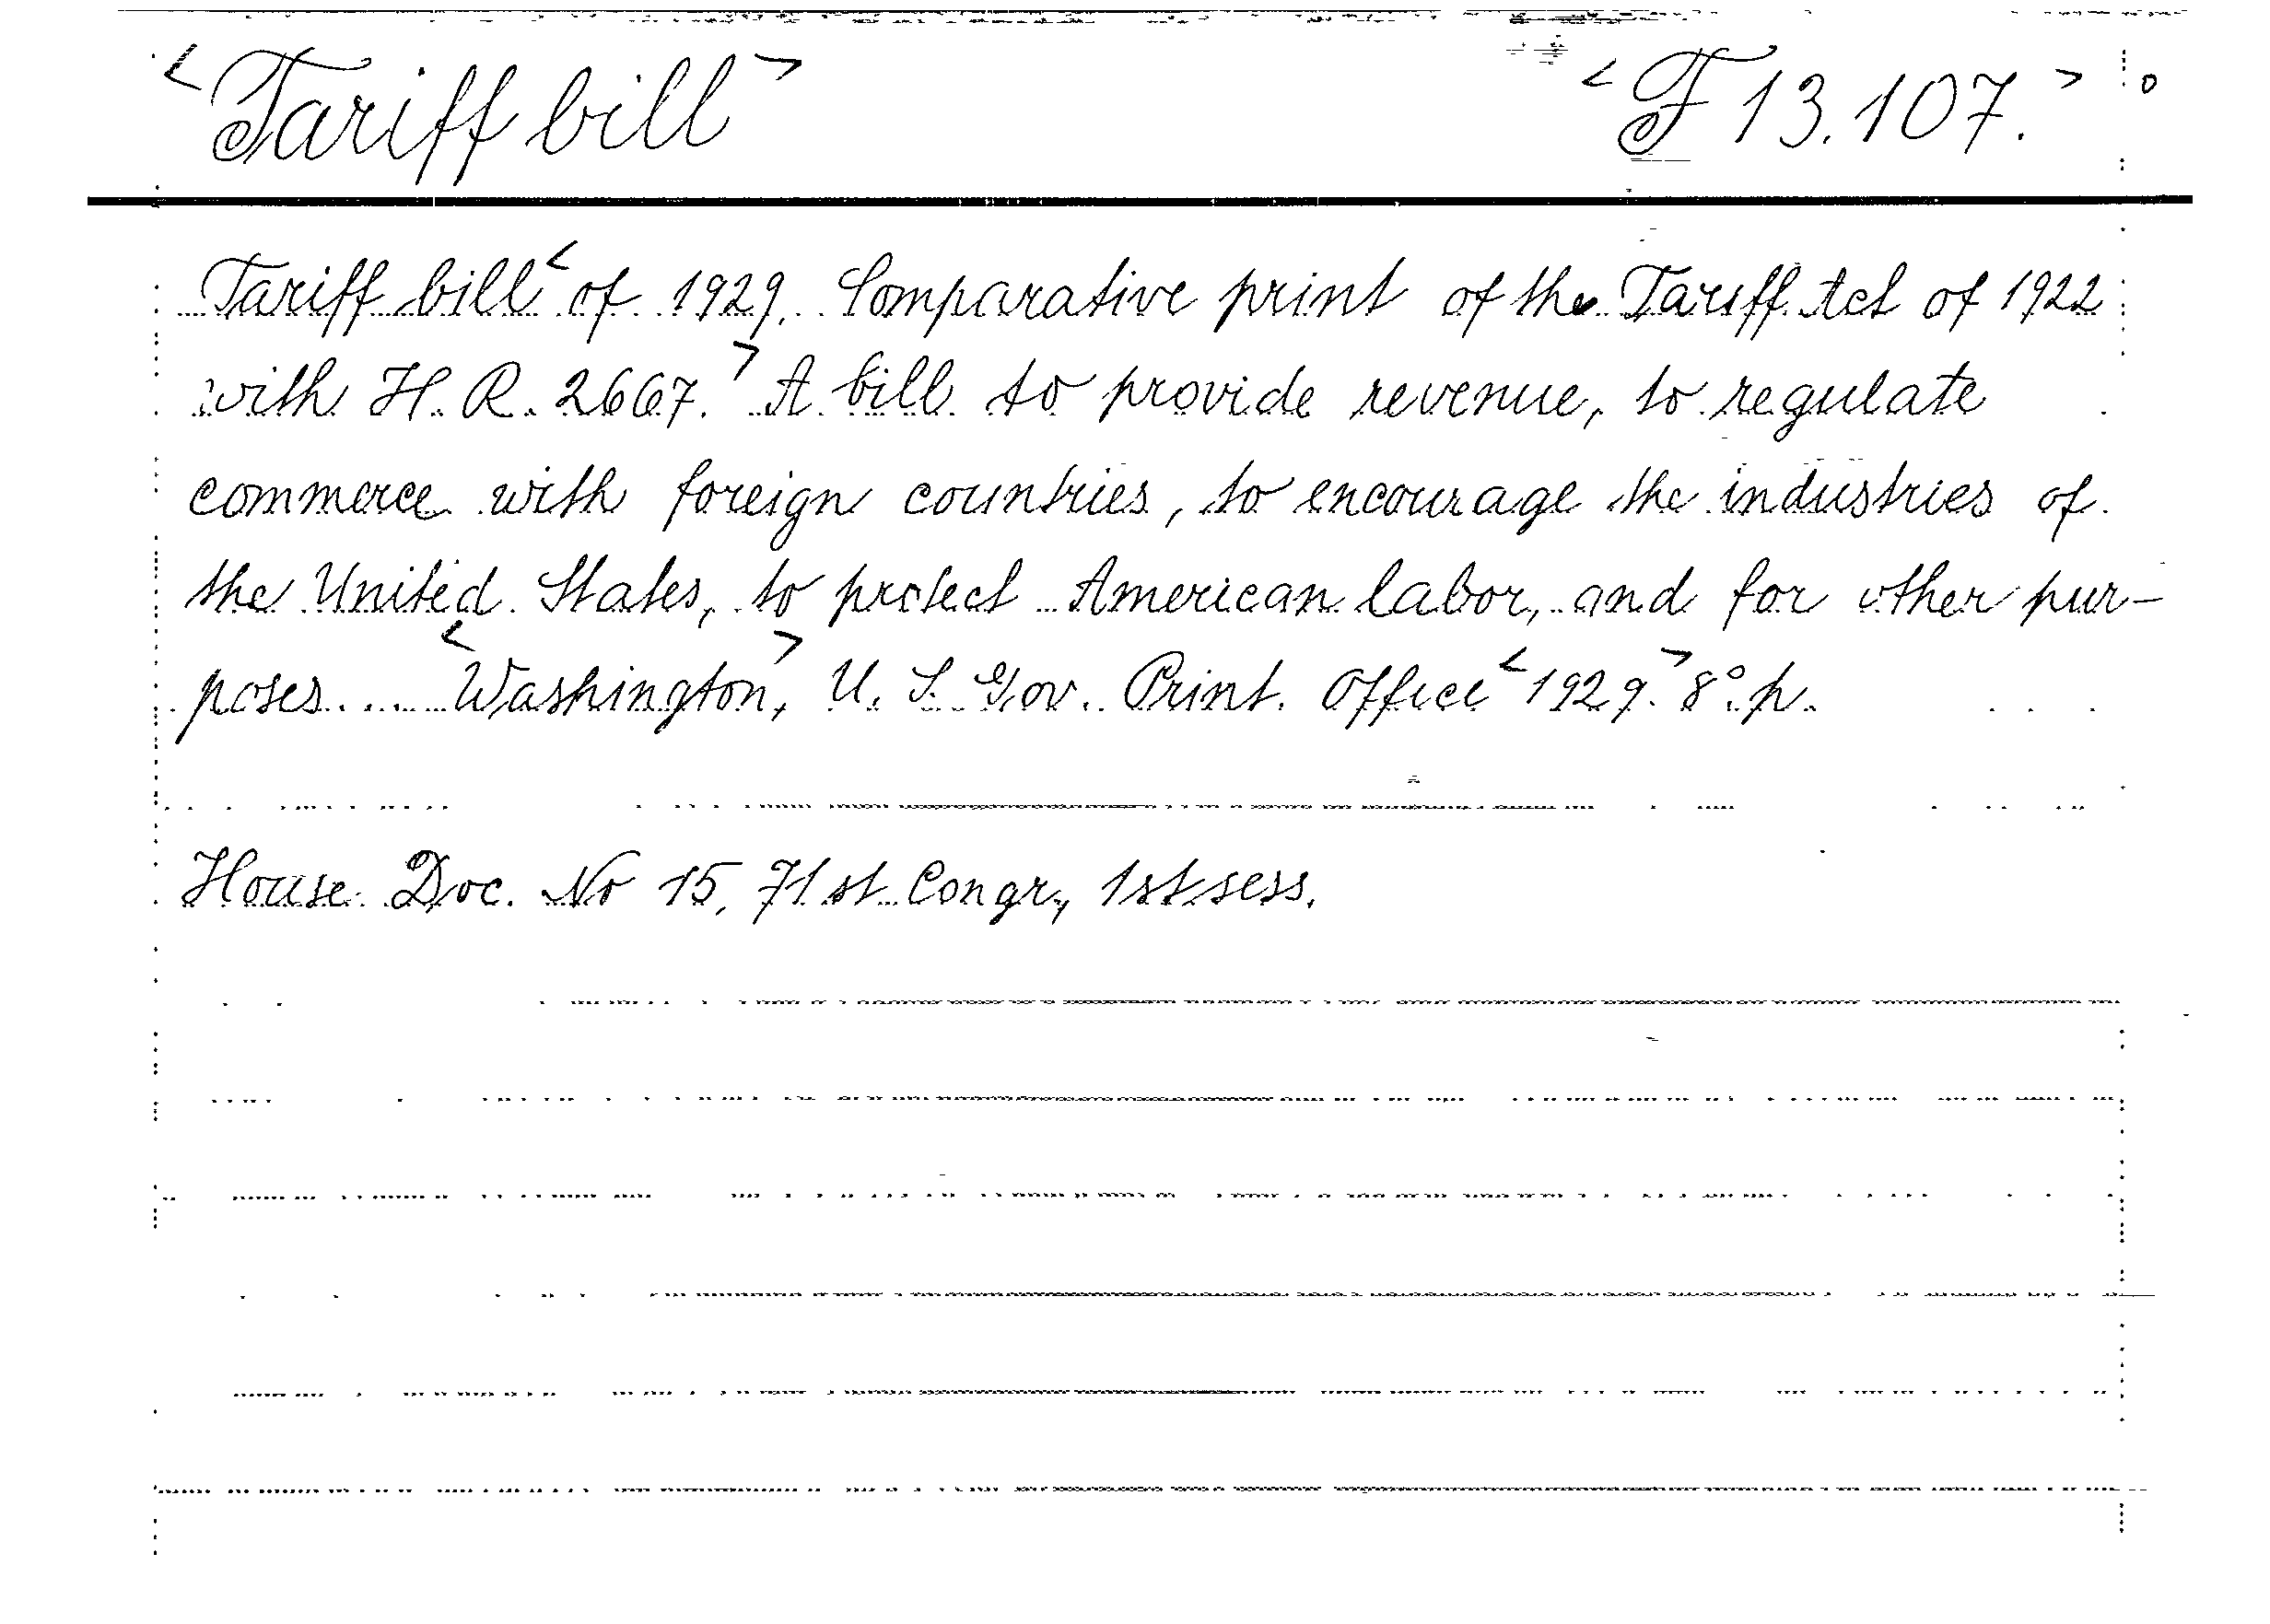 <Tariff bill> <F 13.107.>
Tariff bill < of 1929. Comparative print of the Tariff Act of 1922
with H. R. 2667. > A bill to provide revenue, to regulate
commerce with foreign countries, to encourage the industries of
the United States, to protect American labor, and for other pur-
poses.... <Washington>, U. S. Gov. Print. Office <1929.> 8°. p.
House Doc. No 15, 71st Congr., 1st sess.